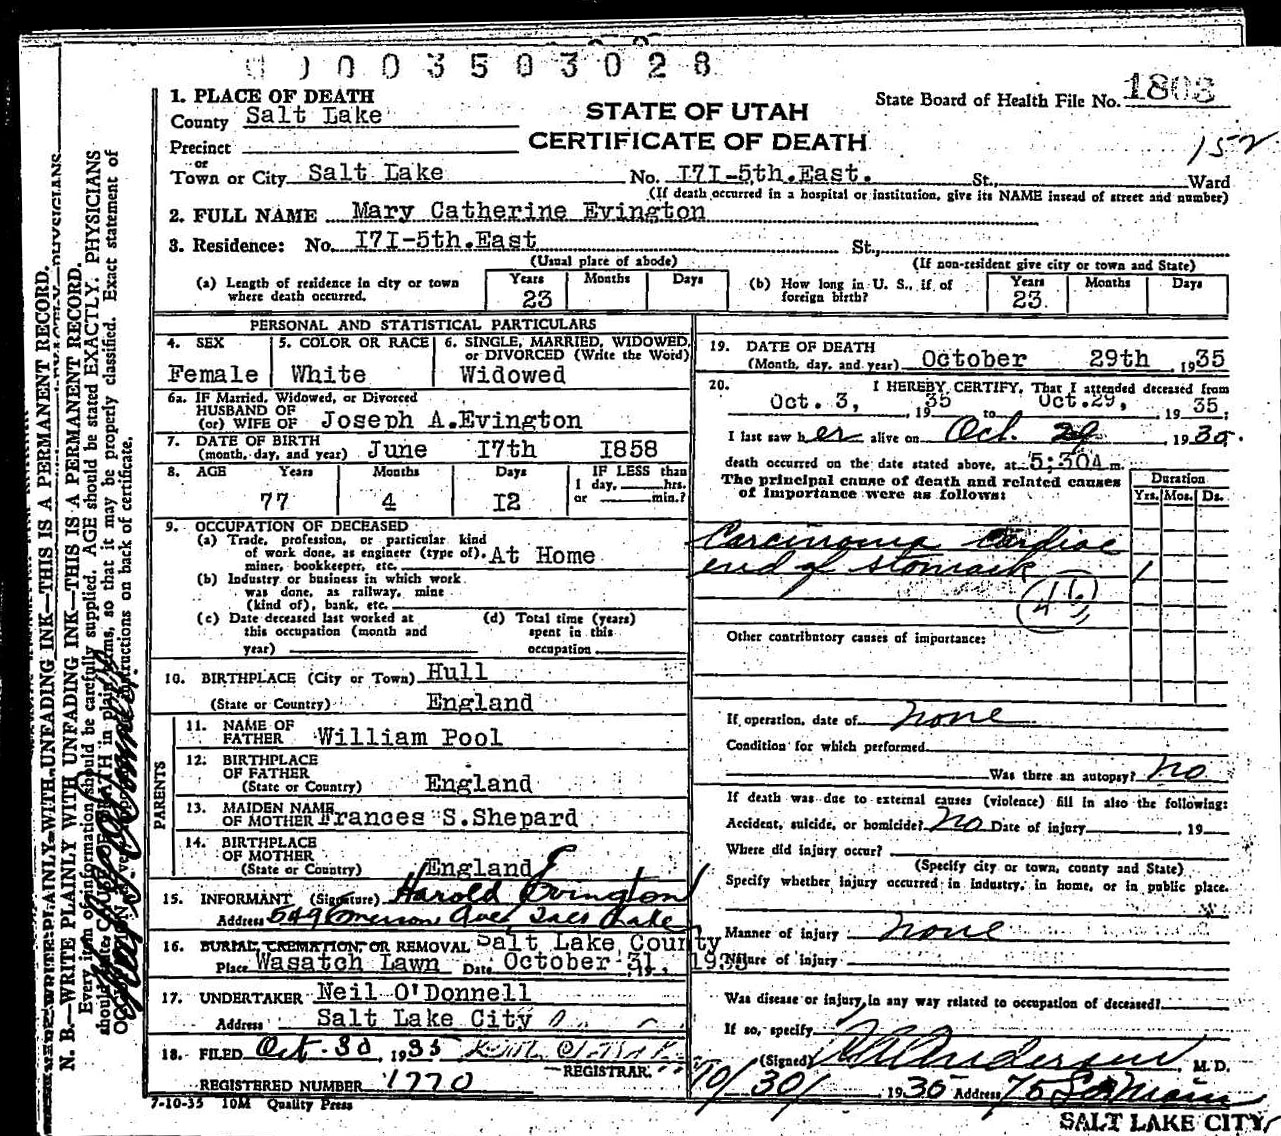 0003503028
1. PLACE OF DEATH
County Salt Lake
STATE OF UTAH
State Board of Health File No. 1808
CERTIFICATE OF DEATH
Precinct
152
or
Town or City Salt Lake No. I7I-5th.East. St., Ward
(If death occurred in a hospital or institution, give its NAME instead of street and number)
2. FULL NAME Mary Catherine Evington
3. Residence: No. I7I-5th.East St,
(Usual place of abode) (If non-resident give city or town and State)
(a) Length of residence in city or town where death occurred. Years 23 Months Days
(b) How long in U. S., if of foreign birth? Years 23. Months Days
PERSONAL AND STATISTICAL PARTICULARS
4. SEX Female
5. COLOR OR RACE White
6. SINGLE, MARRIED, WIDOWED, or DIVORCED (Write the Word) Widowed
6a. IF Married, Widowed, or Divorced
HUSBAND OF
(or) WIFE OF Joseph A.Evington
7. DATE OF BIRTH
(month, day, and year) June I7th I858
8. AGE Years 77 Months 4 Days I2
IF LESS than
1 day, hrs.
or min.?
9. OCCUPATION OF DECEASED
(a) Trade, profession, or particular kind
of work done, as engineer (type of). At Home
miner, bookkeeper, etc.
(b) Industry or business in which work
was done, as railway, mine
(kind of), bank, etc.
(c) Date deceased last worked at
this occupation (month and
year)
(d) Total time (years)
spent in this
occupation
10. BIRTHPLACE (City or Town) Hull
(State or Country) England
PARENTS
11. NAME OF
FATHER William Pool
12. BIRTHPLACE
OF FATHER
(State or Country) England
13. MAIDEN NAME
OF MOTHER Frances S.Shepard
14. BIRTHPLACE
OF MOTHER
(State or Country) England
15. INFORMANT (Signature) Harold Evington
Address 549 Emerson Ave, Salt Lake
16. BURIAL, CREMATION, OR REMOVAL Salt Lake County
Place Wasatch Lawn Date October 31, 1935
17. UNDERTAKER Neil O'Donnell
Address Salt Lake City
18. FILED Oct-30, 1935
REGISTRAR.
REGISTERED NUMBER 1770
7-10-35 10M Quality Press
19. DATE OF DEATH
(Month, day, and year) October 29th 1935
20. I HEREBY CERTIFY, That I attended deceased from
Oct. 3, 1935 to Oct.29, 1935,
I last saw her alive on Oct. 29, 1935.
death occurred on the date stated above, at 5:30A m.
The principal cause of death and related causes
of importance were as follows:
Duration
Yrs. Mos. Ds.
Carcinoma Cardiac
end of stomach 1
46
Other contributory causes of importance:
If operation, date of none
Condition for which performed
Was there an autopsy? no
If death was due to external causes (violence) fill in also the following:
Accident, suicide, or homicide? no Date of injury , 19
Where did injury occur?
(Specify city or town, county and State)
Specify whether injury occurred in Industry, in home, or in public place.
Manner of injury none
Nature of injury
Was disease or injury in any way related to occupation of deceased?
If so, specify
(Signed) Anderson M. D.
10/30/ 1935 Address 75 So Main
SALT LAKE CITY,
N. B.—WRITE PLAINLY WITH UNFADING INK—THIS IS A PERMANENT RECORD.
Every item of information should be carefully supplied. AGE should be stated EXACTLY. PHYSICIANS
should state CAUSE OF DEATH in plain terms, so that it may be properly classified. Exact statement of
instructions on back of certificate.